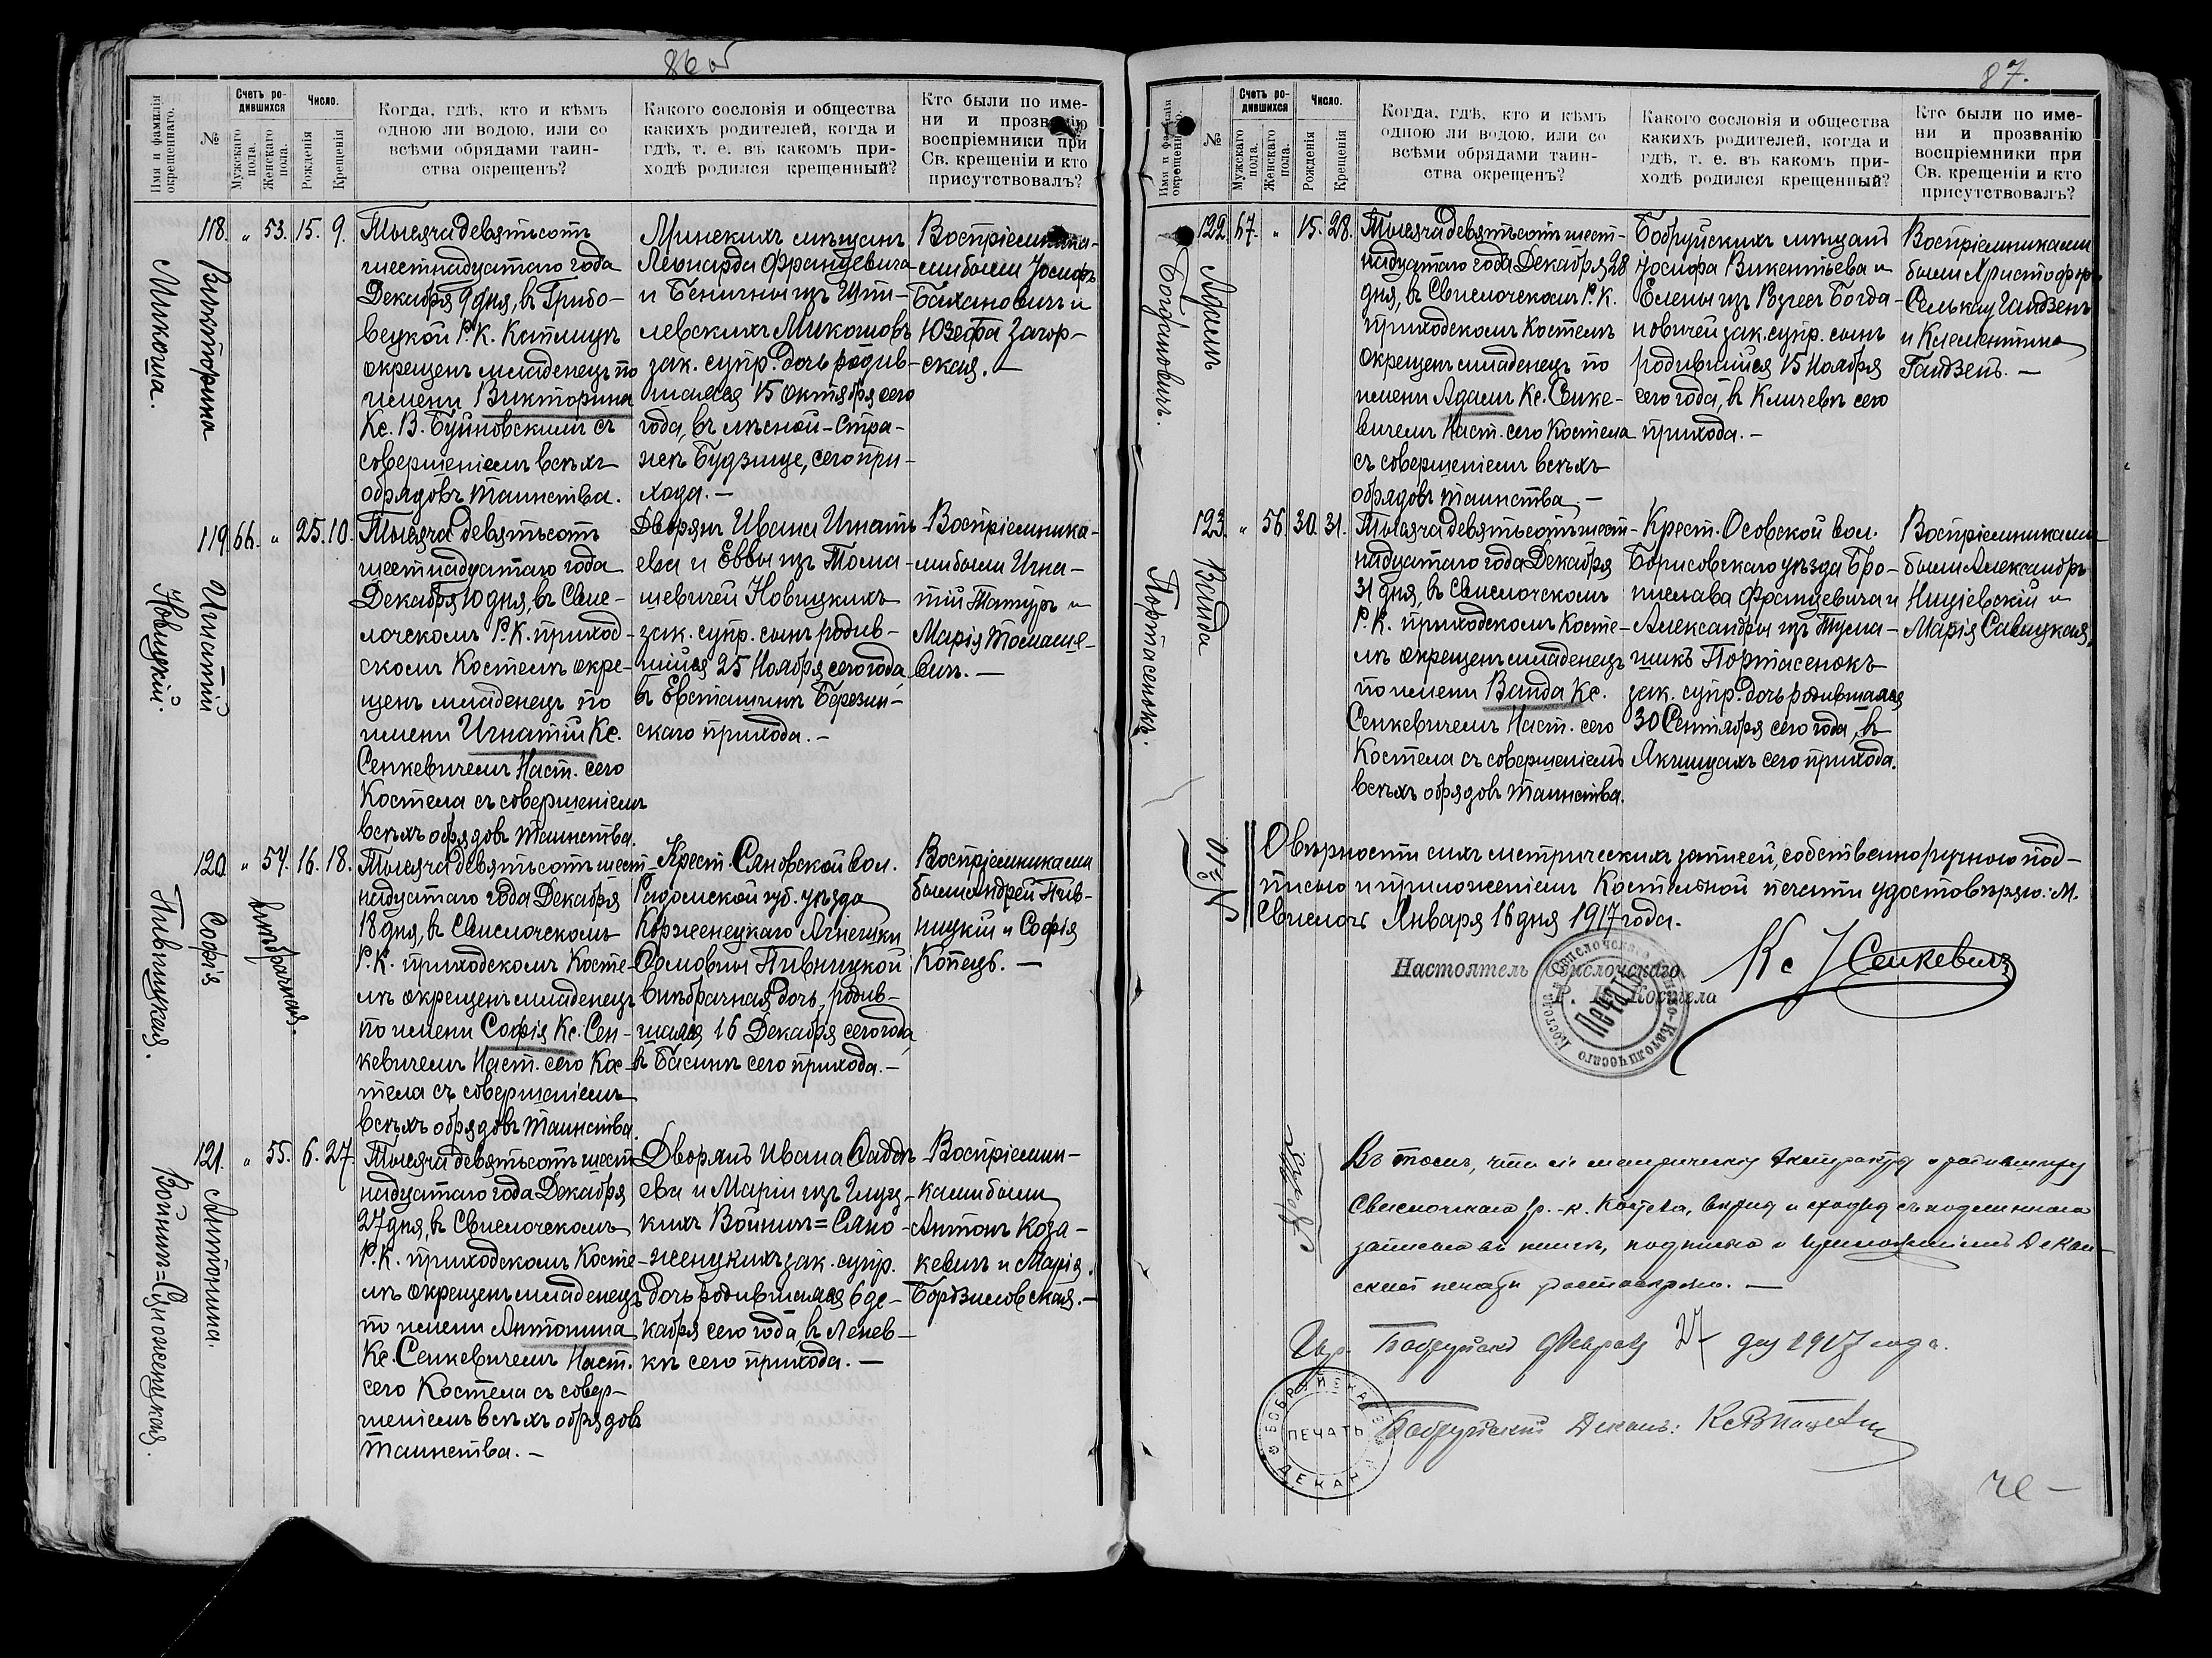 86 об
Имя и фамилія окрещеннаго.
№
Счетъ ро-
дившихся
Мужскаго пола.
Женскаго пола.
Число.
Рожденія
Крещенія
Когда, гдѣ, кто и кѣмъ
одною ли водою, или со
всѣми обрядами таин-
ства окрещенъ?
Какого сословія и общества
какихъ родителей, когда и
гдѣ, т. е. въ какомъ при-
ходѣ родился крещенный?
Кто были по име-
ни и прозванію
воспріемники при
Св. крещеніи и кто
присутствовалъ?
Микоша.
Викторина
118. " 53. 15. 9.
Тысяча девятьсотъ
шестнадцатаго года
Декабря 9 дня, въ
Р. К.
окрещенъ младенецъ по
имени Викторина
Кс. В. Буйновскимъ съ
совершеніемъ всѣхъ
обрядовъ таинства.
Минскихъ мѣщанъ
Леонарда Францевича
и Бенигны изъ Шпи-
левскихъ Микошовъ
зак. супр. дочь родив-
шаяся 15 Октября сего
года, въ лѣсной-стра-
жѣ Будзище, сего при-
хода. —
Воспріемника-
ми были Іосифъ
Баханович и
Юзефа Загор-
ская. —
Новицкій.
Игнатій
119. 66. " 25. 10.
Тысяча девятьсотъ
шестнадцатаго года
Декабря 10 дня, въ Свис-
лочскомъ Р. К. приход-
скомъ Костелѣ окре-
щенъ младенецъ по
имени Игнатій Кс.
Сенкевичемъ Наст. сего
Костела съ совершеніемъ
всѣхъ обрядовъ таинства.
Дворянъ Ивана Игнать-
ева и Еввы изъ Тома-
шевичей Новицкихъ
зак. супр. сынъ родив-
шійся 25 Ноября сего года
въ Березин-
скаго прихода. —
Воспріемника-
ми были Игна-
тій Татуръ и
Марія Томаше-
вич. —
Пивницкая.
Софія
внѣбрачная.
120. " 54. 16. 18.
Тысяча девятьсотъ шест-
надцатаго года Декабря
18 дня, въ Свислочскомъ
Р. К. приходскомъ Косте-
лѣ окрещенъ младенецъ
по имени Софія Кс. Сен-
кевичемъ Наст. сего Кос-
тела съ совершеніемъ
всѣхъ обрядовъ таинства.
Крест. Сановской вол.
Радомской губ. уѣзда
Корженецкаго Агнешки
Пивницкой
внѣбрачная дочь, родив-
шаяся 16 Декабря сего года,
въ Басинѣ сего прихода. —
Воспріемниками
были Андрей Пив-
ницкій и Софія
Копецъ. —
Войнич=Сяноженцкая.
Антонина.
121. " 55. 6. 27.
Тысяча девятьсотъ шест-
надцатаго года Декабря
27 дня, въ Свислочскомъ
Р. К. приходскомъ Косте-
лѣ окрещенъ младенецъ
по имени Антонина
Кс. Сенкевичемъ Наст.
сего Костела съ совер-
шеніемъ всѣхъ обрядовъ
таинства. —
Дворянъ Ивана Фадде-
ева и Маріи изъ
Войнич=Сяно-
женцкихъ зак. супр.
дочь родившаяся 6 де-
кабря сего года въ
сего прихода. —
Воспріемни-
ками были
Антонъ Коза-
кевичъ и Марія
Бордзиловская. —
87.
Имя и фамилія окрещеннаго.
№
Счетъ ро-
дившихся
Мужскаго пола.
Женскаго пола.
Число.
Рожденія
Крещенія
Когда, гдѣ, кто и кѣмъ
одною ли водою, или со
всѣми обрядами таин-
ства окрещенъ?
Какого сословія и общества
какихъ родителей, когда и
гдѣ, т. е. въ какомъ при-
ходѣ родился крещенный?
Кто были по име-
ни и прозванію
воспріемники при
Св. крещеніи и кто
присутствовалъ?
Богдановичъ.
Адамъ
122. 67. " 15. 28.
Тысяча девятьсотъ шест-
надцатаго года Декабря 28
дня, въ Свислочскомъ Р. К.
приходскомъ Костелѣ
окрещенъ младенецъ по
имени Адамъ Кс. Сенке-
вичемъ Наст. сего Костела
съ совершеніемъ всѣхъ
обрядовъ таинства. —
Бобруйскихъ мѣщанъ
Іосифа Викентьева и
Елены изъ Богда-
новичей зак. супр. сынъ
родившійся 15 Ноября
сего года, въ Кличевѣ сего
прихода. —
Воспріемниками
были Христофоръ
Гайдзенъ
и Клементина
Гайдзень. —
Портасенокъ.
Ванда
123. " 56. 30. 31.
Тысяча девятьсотъ шест-
надцатаго года Декабря
31 дня, въ Свислочскомъ
Р. К. приходскомъ Косте-
лѣ окрещенъ младенецъ
по имени Ванда Кс.
Сенкевичемъ Наст. сего
Костела съ совершеніемъ
всѣхъ обрядовъ таинства.
Крест. Осовской вол.
Борисовскаго уѣзда Бро-
нислава Францевича и
Александры изъ
Портасенокъ
зак. супр. дочь родившаяся
30 Сентября сего года, въ
Якшицахъ сего прихода.
Воспріемниками
были Александръ
и
Марія Савицкая.
№ 310
О вѣрности сихъ метрическихъ записей, собственноручною под-
писью и приложеніемъ Костельной печати удостовѣряю: М.
Свислочь Января 16 дня 1917 года.
Настоятель Свислочскаго
Р. К. Костела
Кс Сенкевичъ
Печать
Свислочскаго Римско-Католическаго Костела
Въ томъ, что
Свислочскаго р.-к. Костела, съ подлинною
записью въ книгѣ, подписью и приложеніемъ Декан-
ской печати удостовѣряю. —
Гор. Бобруйскъ Февраля 27 дня 1917 года.
Бобруйскій Деканъ: Кс
ПЕЧАТЬ